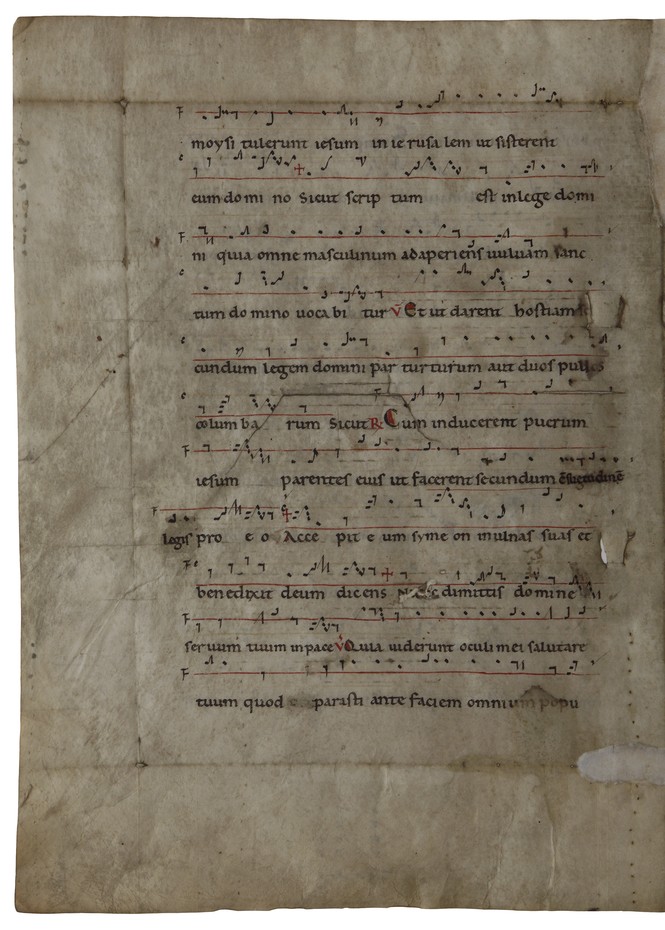 moysi tulerunt iesum in ie rusa lem ut sisterent
eum do mi no Sicut scrip tum est in lege domi
ni quia omne masculinum adaperiens uuluam sanc
tum do mino uoca bi tur V Et ut darent hostiam
cundum legem domini par turturum aut duos pullos
colum ba rum Sicut R Cum inducerent puerum
iesum parentes eius ut facerent secundum
legis pro e o Acce pit e um syme on in ulnas suas et
benedixit deum dicens dimittis domine
seruum tuum in pace V Quia uiderunt oculi mei salutare
tuum quod parasti ante faciem omnium popu